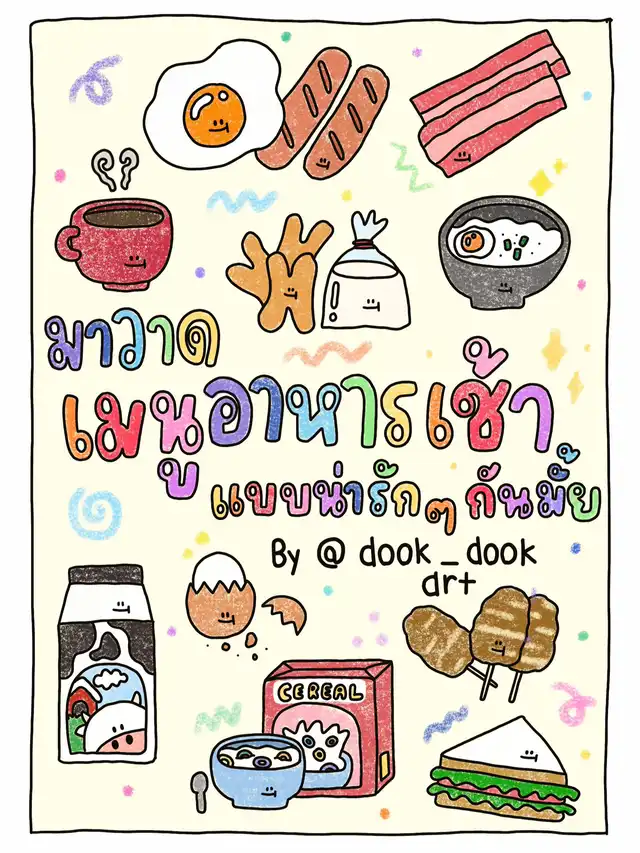 มาวาด
เมนูอาหารเช้า
แบบน่ารักๆ กันมั้ย
By @ dook_dook
drt
CEREAL